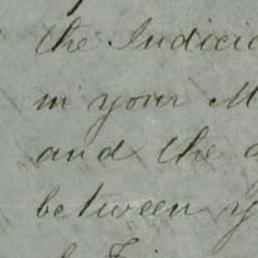 the Judicia
in your M
and the
between y